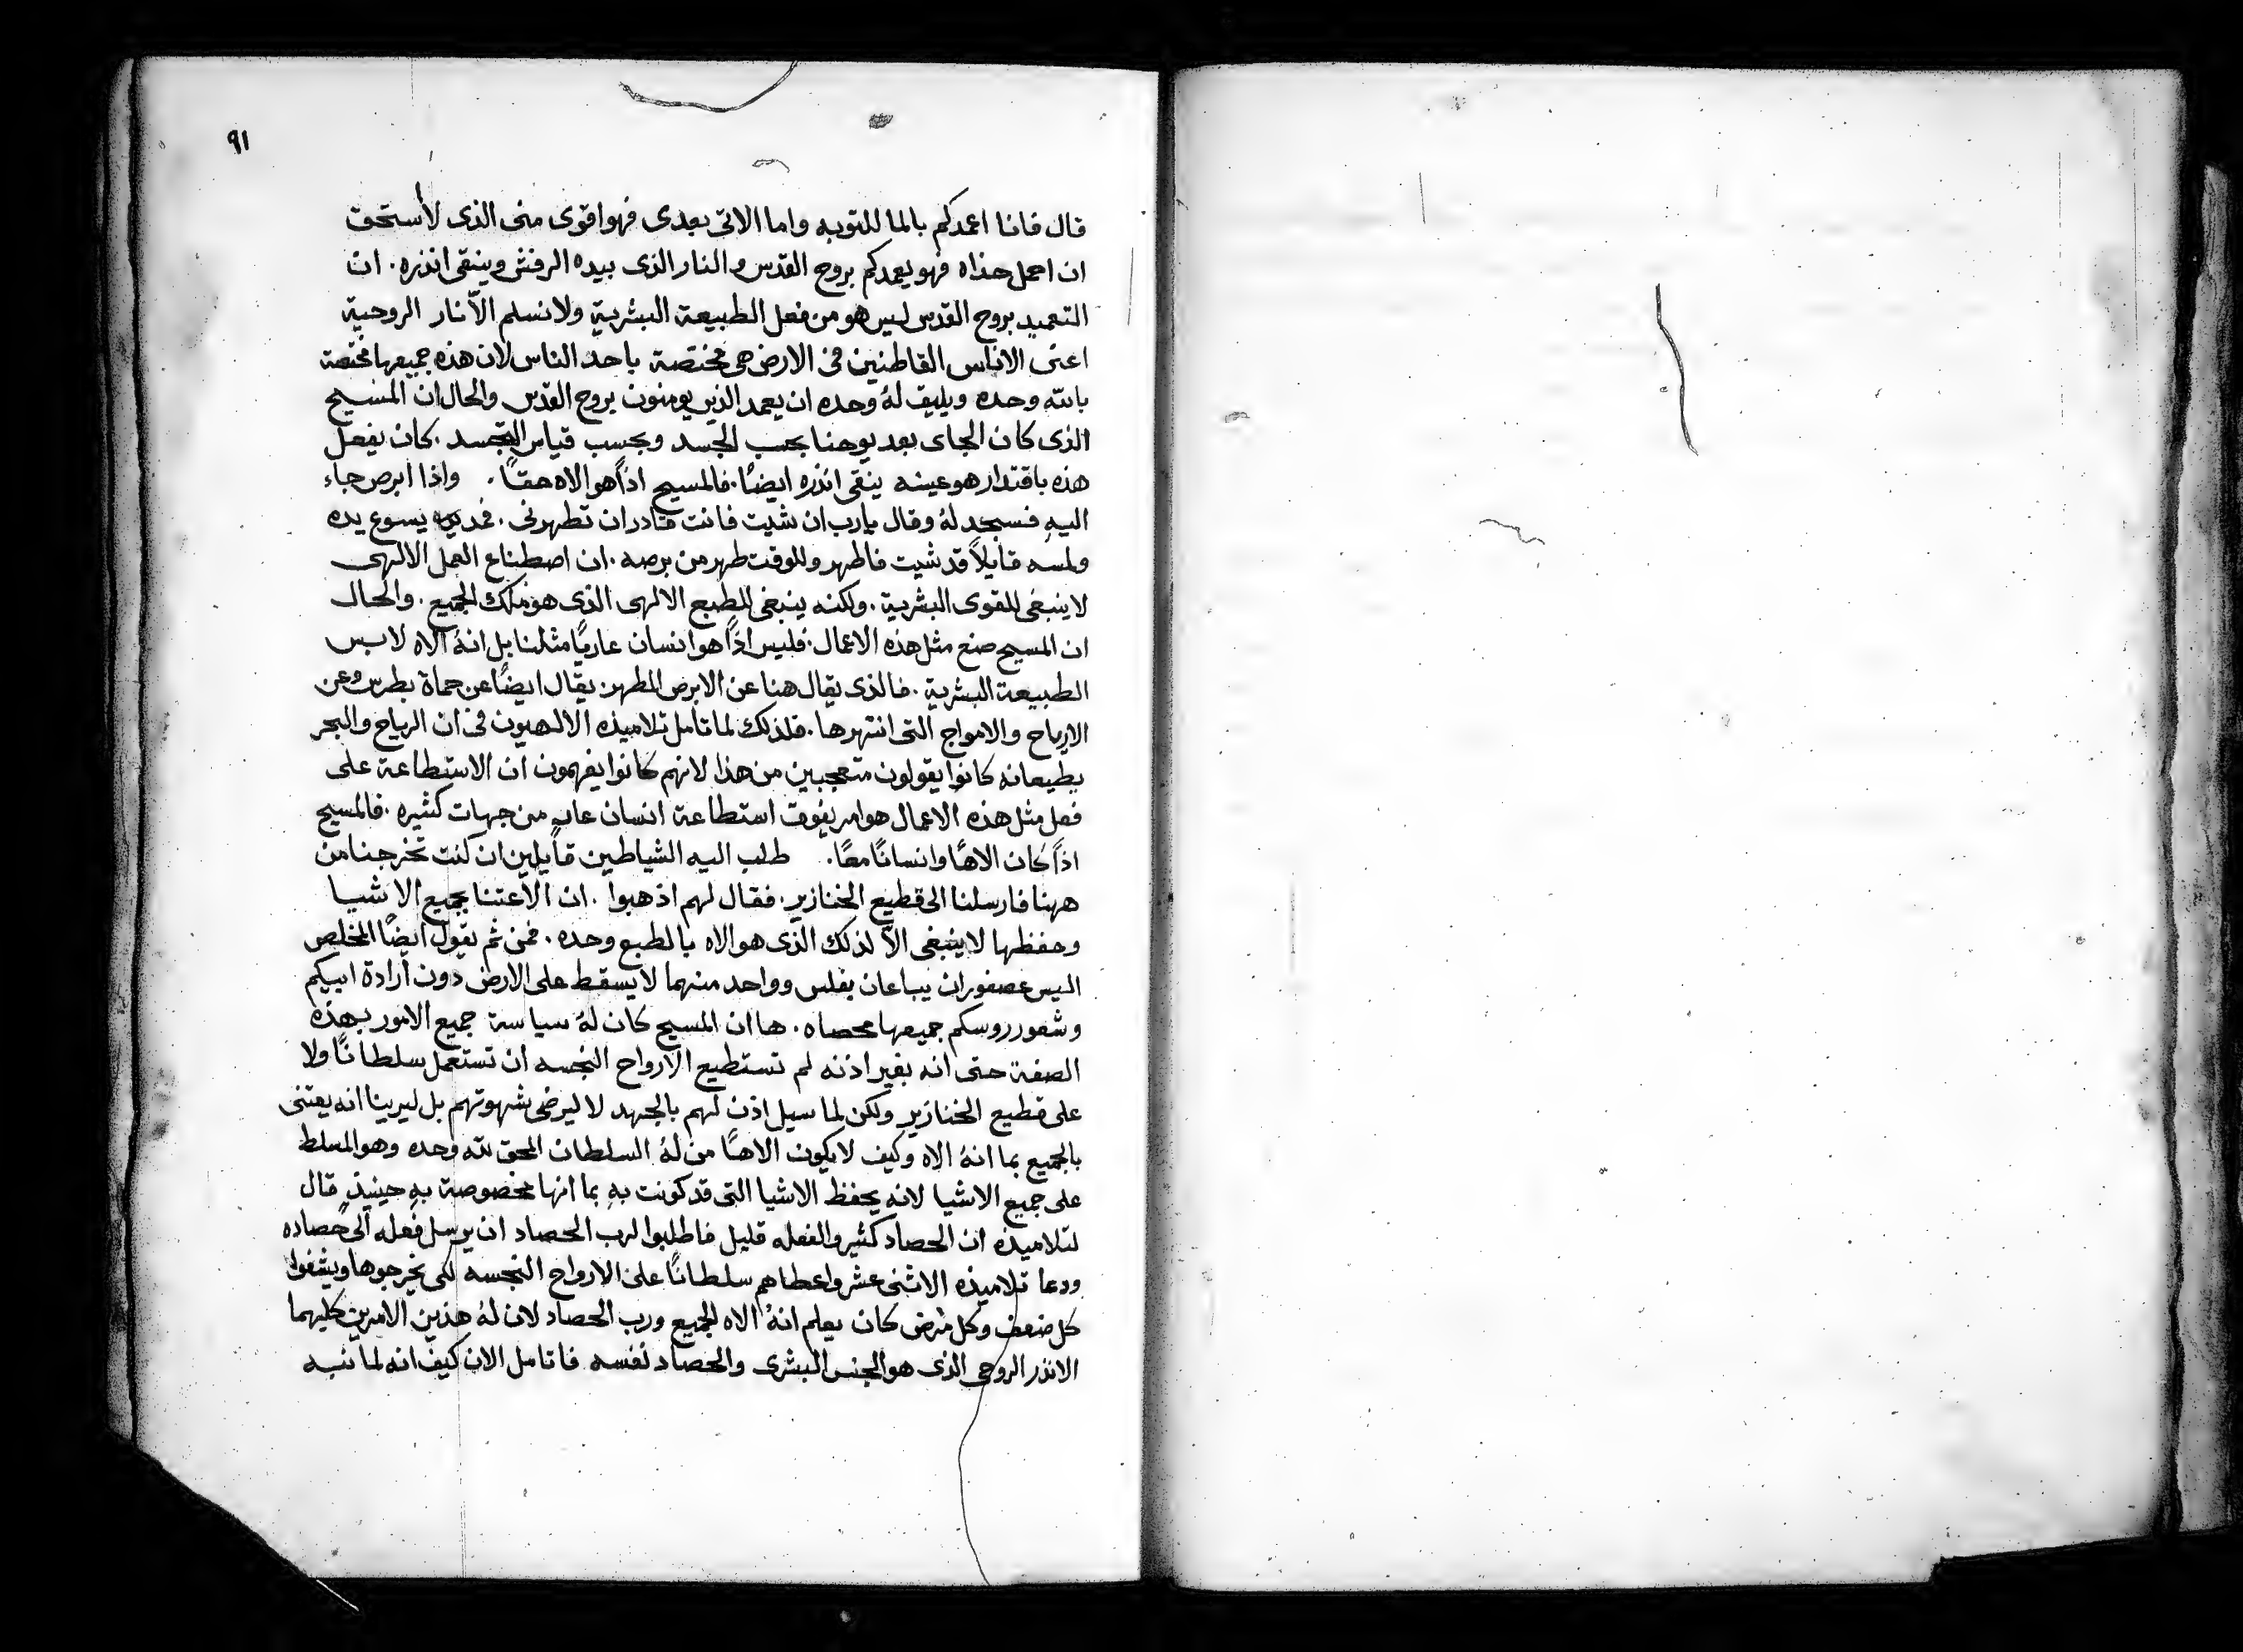 ٩١
قال فانا اعمدكم بالما للتوبه واما الاتى بعدى فهو اقوى منى الذى لاأستحق
ان احمل حذاه فهو يعمدكم بروح القدس والنار الذى بيده الرفش وينقى اندره . ان
التعميد بروح القدس ليس هو من فعل الطبيعة البشرية ولا نسلم الآثار الروحية
اعنى الاناس القاطنين فى الارض هى مختصة باحد الناس لان هذه جميعها مختصة
بالله وحده ويليق لهُ وحده ان يعمد الذين يومنون بروح القدس والحال ان المسيح
الذى كان الجاى بعد يوحنا بحسب الجسد وبحسب قياس التجسد . كان يفعل
هذه باقتدار هو عينه ينقى اندره ايضًا . فالمسيح اذًا هو الاه حقًا . واذا ابرص جاء
اليهِ فسجد لهُ وقال يارب ان شيت فانت قادر ان تطهرنى . فمد يسوع يده
ولمسه قايلاً قد شيت فاطهر وللوقت طهر من برصه . ان اصطناع العمل الالهى
لا ينبغى للقوى البشرية . ولكنه ينبغى للطبع الالهى الذى هو ملك الجميع . والحال
ان المسيح صنع مثل هذه الاعمال . فليس اذًا هو انسان عاريًا مثلنا بل انهُ الاه لابس
الطبيعة البشرية . فالذى يقال هنا عن الابرص المطهر يقال ايضًا عن حماة بطرس وعن
الارياح والامواج التى انتهرها . فلذلك لما تأمل تلاميذه الالهيون فى ان الرياح والبحر
يطيعانه كانوا يقولون متعجبين من هذا لانهم كانوا يفهمون ان الاستطاعة على
فعل مثل هذه الاعمال هو امر يفوق استطاعة انسان عارٍ من جهات كثيره . فالمسيح
اذًا كان الاهًا وانسانًا معًا . طلب اليه الشياطين قايلين ان كنت تخرجنا من
ههنا فارسلنا الى قطيع الخنازير . فقال لهم اذهبوا . ان الاعتنا بجميع الاشيا
وحفظها لا ينبغى الاّ لذلك الذى هو الاه بالطبع وحده . فمن ثم يقول ايضًا المخلص
اليس عصفوران يباعان بفلس وواحد منهما لا يسقط على الارض دون أرادة ابيكم
وشعور روسكم جميعها محصاه . ها ان المسيح كان لهُ سياسة جميع الامور بهذه
الصفة حتى انه بغير اذنه لم تستطيع الارواح النجسه ان تستعمل سلطانًا ولا
على قطيع الخنازير ولكن لما سيل اذن لهم بالجهد لا ليرضى شهوتهم بل ليرينا انه يعتنى
بالجميع بما انهُ الاه وكيف لا يكون الاهًا من لهُ السلطان المحق لله وحده وهو المسلط
على جميع الاشيا لانه يحفظ الاشيا التى قد كونت بهِ بما انها مخصوصة بهِ حينيذٍ قال
لتلاميذه ان الحصاد كثير والفعله قليل فاطلبوا لرب الحصاد ان يرسل فعله الى حصاده
ودعا تلاميذه الاثنى عشر واعطاهم سلطانًا على الارواح النجسه لكى يخرجوها ويشفوا
كل ضعف وكل مرض كان يعلم انهُ الاه الجميع ورب الحصاد لان لهُ هذين الامرين كليهما
الاندر الروحى الذى هو الجنس البشرى والحصاد نفسه فاتامل الان كيف انه لما